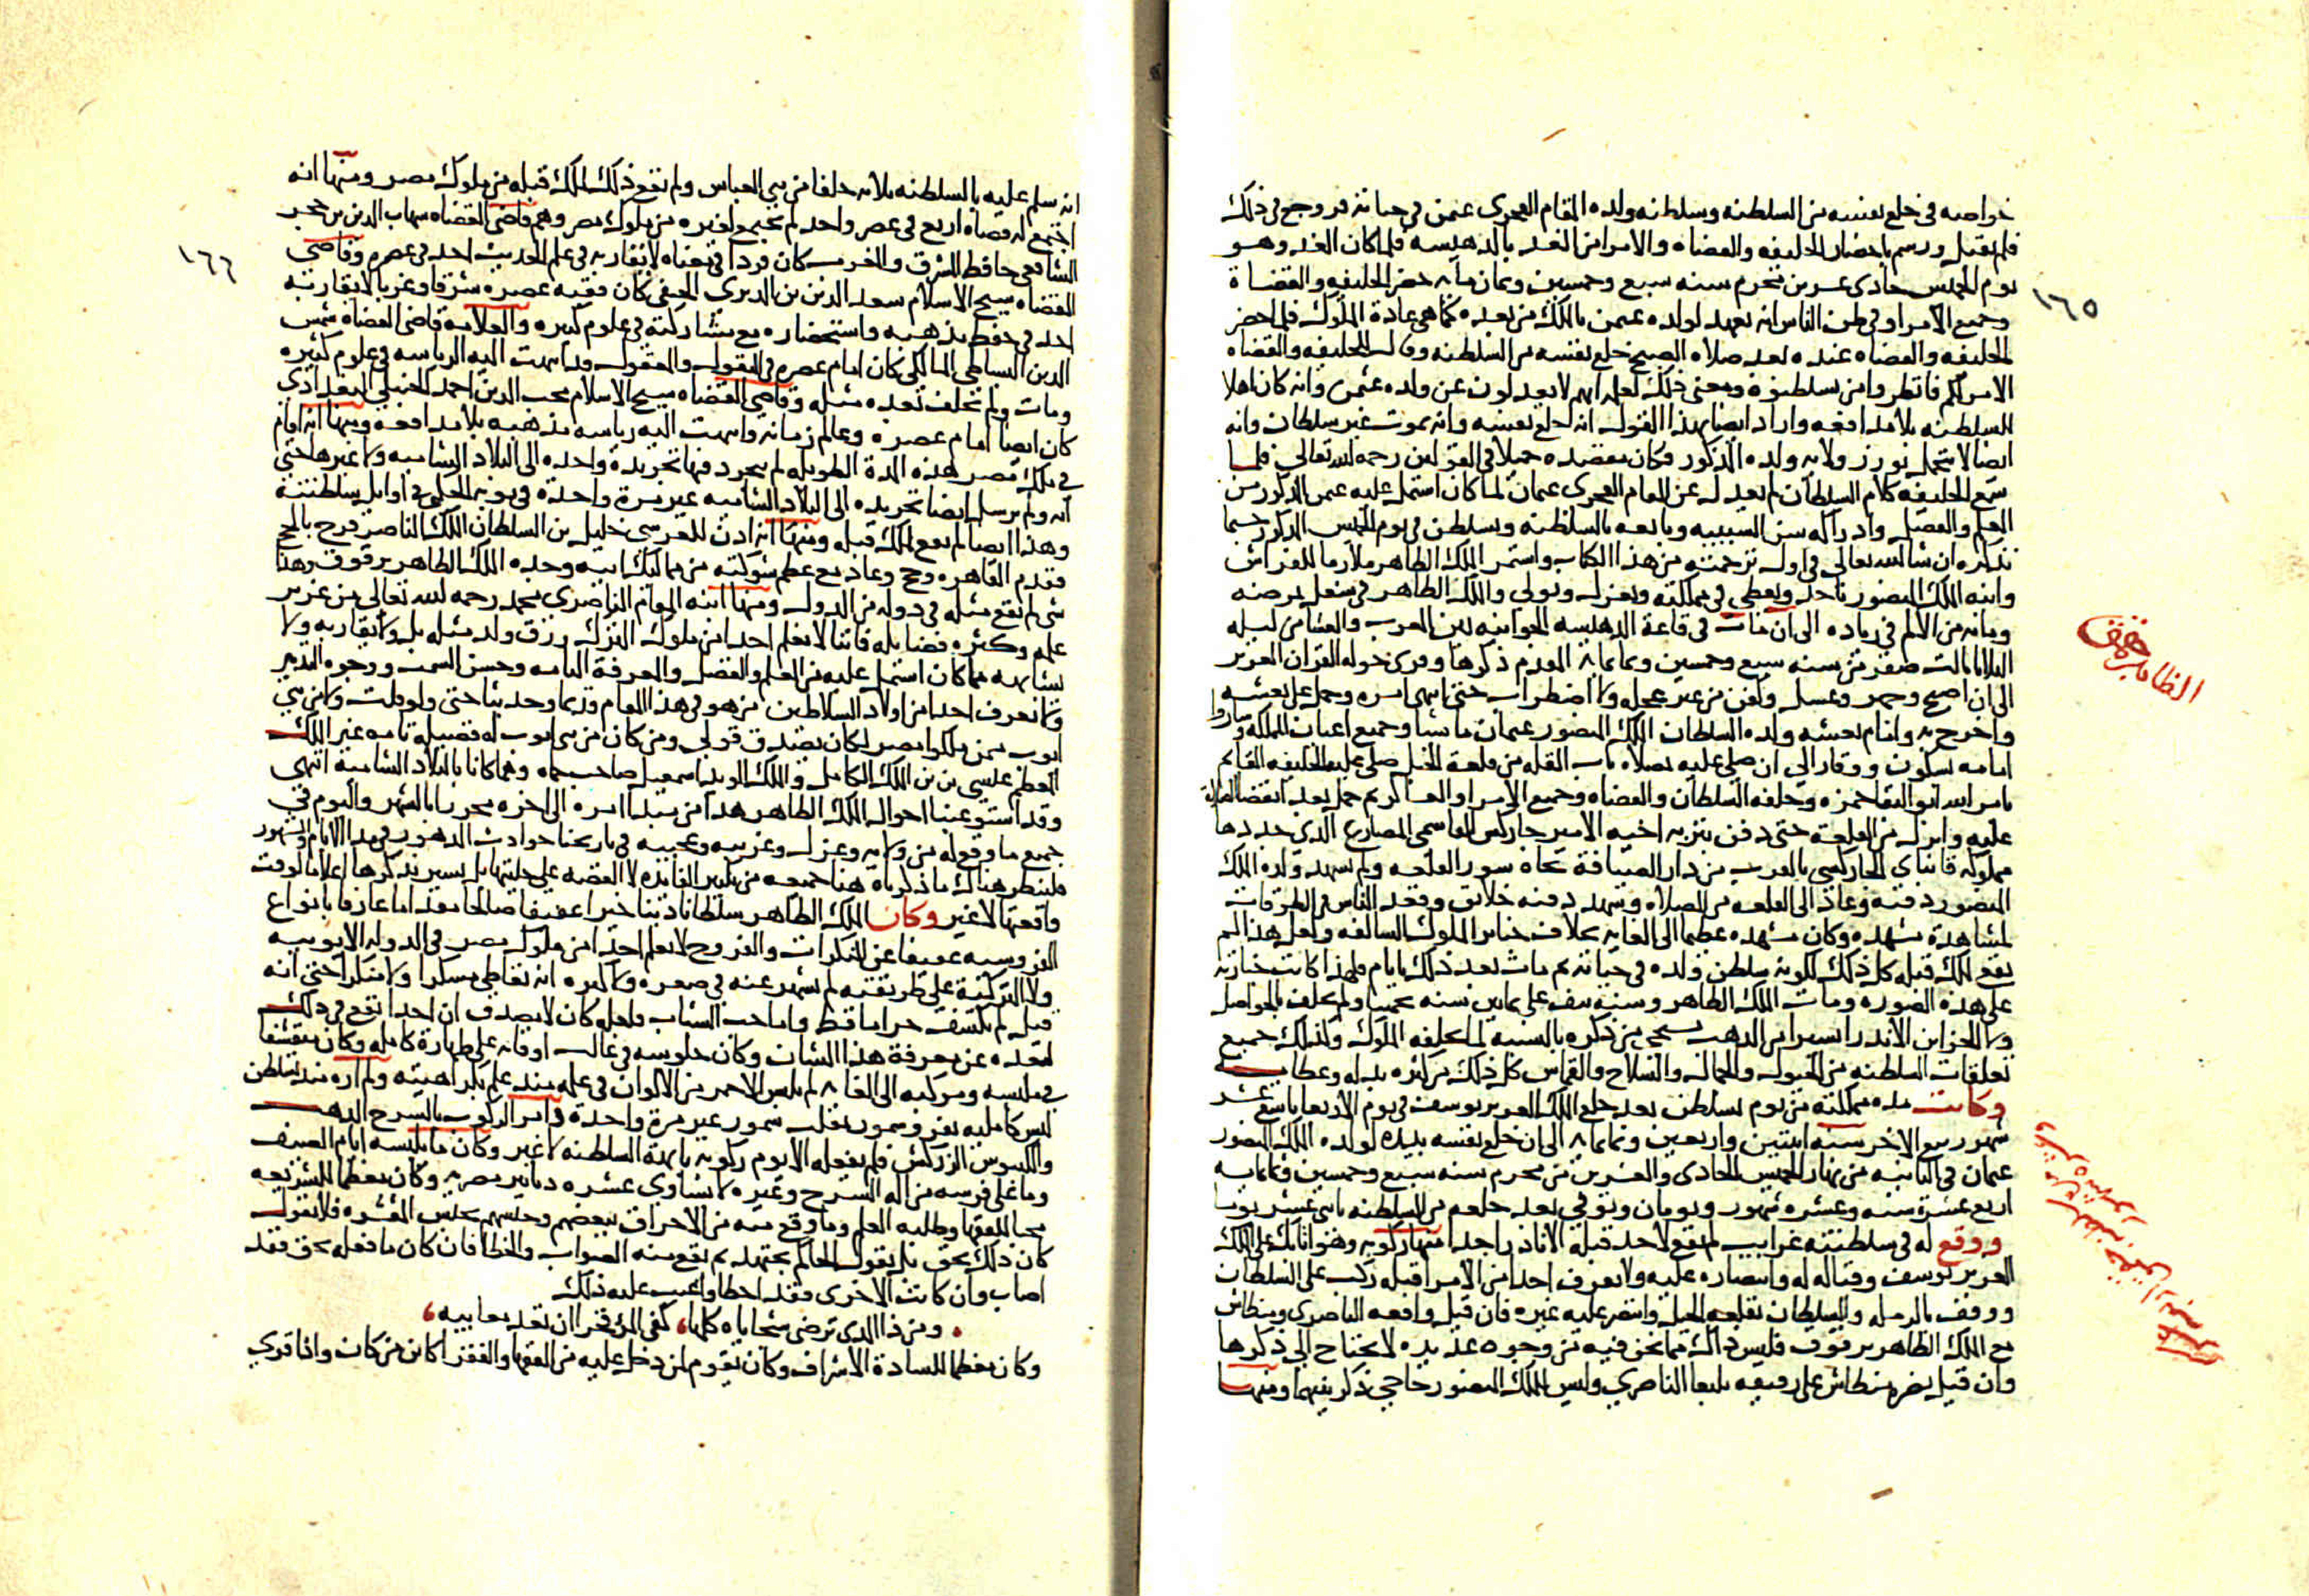 خواصه في خلع نفسه من السلطنه وسلطنه ولده المقام الفخري عثمن في حياته فروجع في ذلك
فلم يقبل ورسم باحضار الخليفه والقضاه والامرا من الغد بالدهيشه فلما كان الغد وهو
يوم الخميس حادى عشرين محرم سنه سبع وخمسين وثمان مايه حضر الخليفه والقضاة
وجميع الامرا وفي ظن الناس انه يعهد لولده عثمن بالملك من بعده كما هي عادة الملوك فلما حضر
الخليفه والقضاه عنده بعد صلاه الصبح خلع نفسه من السلطنه وقال للخليفه والقضاه
الامر لكم فانظروا من تسلطنوه ومعنى ذلك لعلمه انهم لا يعدلون عن ولده عثمن وانه كان اهلا
للسلطنه بلا مدافعه واراد ايضا بهذا القول انه خلع نفسه وانه يموت غير سلطان وانه
ايضا لا يتحمل بوزر ولايه ولده المذكور فكان مقصده جميلا في القولين رحمه الله تعالى فلما
سمع الخليفه كلام السلطان لم يعدل عن المقام الفخرى عثمان لما كان اشتمل عليه عثمن المذكور من
العلم والفضل وادراكه سن الشبيبه وبايعه بالسلطنه وتسلطن في يوم الخميس المذكور حسبما
نذكره ان شا الله تعالى في اول ترجمته من هذا الكتاب واستمر الملك الظاهر ملازما للفراش
وابنه الملك المنصور ياخذ ويعطي في مملكته ويعزل ويولى والملك الظاهر في شغل بمرضه
وما به من الالم في زياده الى ان مات في قاعة الدهيشه الجوانيه بين المغرب والعشا من ليله
الثلاثا ثالث صفر من سنه سبع وخمسين وثمانمايه المقدم ذكرها وقرى حوله القران العزيز
الى ان اصبح وجهز وغسل وكفن من غير عجله ولا اضطراب حتى انتهى امره وحمل على نعشه
واخرج به وامام نعشه ولده السلطان الملك المنصور عثمان ماشيا وجميع اعيان المملكه وساروا
امامه بسكون ووقار الى ان صلي عليه بمصلاه باب القله من قلعة الجبل صلى عليه الخليفه القائم
بامر الله ابو البقا حمزه وخلفه السلطان والقضاه وجميع الامرا والعساكر ثم حمل بعد انقضا الصلاة
عليه وانزل من القلعة حتى دفن بتربه اخيه الامير جاركس القاسمي المصارع الذي جددها
مملوكه قانباي الجاركسي بالقرب من دار الضيافة تجاه سور القلعه ولم يشهد ولده الملك
المنصور دفنه وعاد الى القلعه من المصلاه وشهد دفنه خلائق وقعد الناس في الطرقات
لمشاهدة مشهده وكان مشهده عظيما الى الغايه بخلاف جنايز الملوك السالفه ولعل هذا لم
يقع لملك قبله كل ذلك لكونه سلطن ولده في حياته ثم مات بعد ذلك بايام فلهذا كانت جنازته
على هذه الصوره ومات الملك الظاهر وسنه نيف على ثمانين سنه تخمينا ولم يخلف بالحواصل
ولا الخزاين الا نزرا يسيرا من الذهب يستحي من ذكره بالنسبه لما تخلفه الملوك وكذلك جميع
تعلقات السلطنه من الخيول والجمال والسلاح والقماش كل ذلك من كثره بذله وعطايه
وكانت مده مملكته من يوم تسلطن بعد خلع الملك العزيز يوسف في يوم الاربعا تاسع عشر
شهر ربيع الاخر سنه اثنتين واربعين وثمانمايه الى ان خلع نفسه بيده لولده الملك المنصور
عثمان في الثانيه من نهار الخميس الحادى والعشرين من محرم سنه سبع وخمسين وثمانمايه
اربع عشرة سنه وعشره شهور ويومان وتوفي بعد خلعه من السلطنه باثني عشر يوما
ووقع له في سلطنته غرايب لم تقع لاحد قبله الا نادرا جدا منها ركوبه وهو اتابك على الملك
العزيز يوسف وقتاله له وانتصاره عليه ولا يعرف احد من الامرا قبله ركب على السلطان
ووقف بالرمله والسلطان بقلعه الجبل وانتصر عليه غيره فان قيل واقعه الناصري ومنطاش
مع الملك الظاهر برقوق فليس ذاك مما نحن فيه من وجوه عديده لا يحتاج الى ذكرها
وان قيل نصره منطاش على رفيقه يلبغا الناصري وليس للملك المنصور حاجي ذكر بينهما ومنها
١٦٥
الظاهر جقمق
انه سلم عليه بالسلطنه ثلاثه خلفا من بني العباس ولم يقع ذلك لملك قبله من ملوك مصر ومنها انه
اجتمع له قضاه اربع في عصر واحد لم يجتمعوا لغيره من ملوك مصر وهم قاضى القضاه شهاب الدين بن حجر
الشافعي حافظ المشرق والمغرب كان فردا في معناه لا يقاربه في علم الحديث احد في عصره وقاضي
القضاه شيخ الاسلام سعد الدين بن الديرى الحنفي كان فقيه عصره شرقا وغربا لا يقاربه
احد في حفظ مذهبه واستحضاره مع مشاركته في علوم كثيره والعلامه قاضى القضاه شمس
الدين البساطي المالكي كان امام عصره في المنقول والمعقول وانتهت اليه الرياسه في علوم كثيره
ومات ولم يخلف بعده مثله وقاضي القضاه شيخ الاسلام محب الدين احمد الحنبلي البغدادي
كان ايضا امام عصره وعالم زمانه وانتهت اليه رياسه مذهبه بلا مدافعه ومنها انه اقام
في ملك مصر هذه المدة الطويله لم يجرد فيها تجريدة واحده الى البلاد الشاميه ولا غيرها حتى
انه لم يرسل ايضا تجريده الى البلاد الشاميه غير مرة واحدة في نوبه الجكمي في اوايل سلطنته
وهذا ايضا لم يقع لملك قبله ومنها انه اذن للغرسي خليل بن السلطان الملك الناصر فرج بالحج
فقدم القاهره وحج وعاد مع عظم شوكته من مماليك ابيه وجده الملك الظاهر برقوق وهذا
شى لم يقع مثله في دوله من الدول ومنها ابنه المقام الناصري محمد رحمه الله تعالى من غزير
علمه وكثره فضايله فاننا لا نعلم احدا من ملوك الترك رزق ولدا مثله بل ولا يقاربه ولا
يشابهه مما كان اشتمل عليه من العلم والفضل والمعرفة التامه وحسن السمت وجوده التدبير
ولا نعرف احدا من اولاد السلاطين من هو في هذا المقام قديما وحديثا حتى ولو قلت ولا من بني
ايوب ممن ملكوا مصر لكان يصدق قولي ومن كان من بني ايوب له فضيله تامه غير الملك
المعظم عيسى بن الملك الكامل والملك المويد اسمعيل صاحب حماه وهما كانا بالبلاد الشاميه انتهى
وقد استوعبنا احوال الملك الظاهر هذا من مبدا امره الى اخره محررا بالشهر واليوم في
جميع ما وقع له من ولايه وعزل وغريبه وعجيبه في تاريخنا حوادث الدهور في مدا الايام والشهور
فلينظر هناك ما ذكرناه هنا جميعه من تكثير الفايده لا القصه على جليتها بل يسير نذكرها اعلاما لوقت
واقعتها لا غير وكان الملك الظاهر سلطانا دينا خيرا عفيفا صالحا فقيها عارفا بانواع
الفروسيه عفيفا عن المنكرات والفروج لا نعلم احدا من ملوك مصر في الدوله الايوبيه
ولا التركية على طريقته لم يشهر عنه في صغره ولا كبره انه تعاطى مسكرا ولا منكرا حتى انه
قيل لم يكشف حراما قط واما حب الشباب فلعله كان لا يصدف ان احدا يقع في ذلك
لبعده عن معرفة هذا الشان وكان جلوسه في غالب اوقاته على طهارة كامله وكان متقشفا
في ملبسه ومركبه الى الغايه لم يلبس الاحمر من الالوان في عمله منذ علم بكراهيته ولم اره منذ تسلطن
لبس كامليه بفرو سمور بمقلب سمور غير مرة واحدة واما الركوب بالسرج الذهب
والكنبوش الزركش فلم يفعله الا يوم ركوبه بابهة السلطنه لا غير وكان ما يلبسه ايام الصيف
وما على فرسه من اله السرج وغيره لا يساوى عشره دنانير مصريه وكان معظما للشريعه
محبا للفقها وطلبه العلم وما وقع منه من الاخراق ببعضهم وحبسهم بحبس المقشره فلا نقول
كان ذلك بحق بل نقول الحاكم مجتهد ثم يقع منه الصواب والخطا فان كان ما فعله بحق فقد
اصاب وان كانت الاخرى فقد اخطا واعيب عليه ذلك
ومن ذا الذى ترضى سجاياه كلها، كفى المرء فخرا ان تعد معايبه،
وكان معظما للسادة الاشراف وكان يقوم لمن دخل عليه من الفقها والفقرا كائن من كان واذا قرى
١٦٦